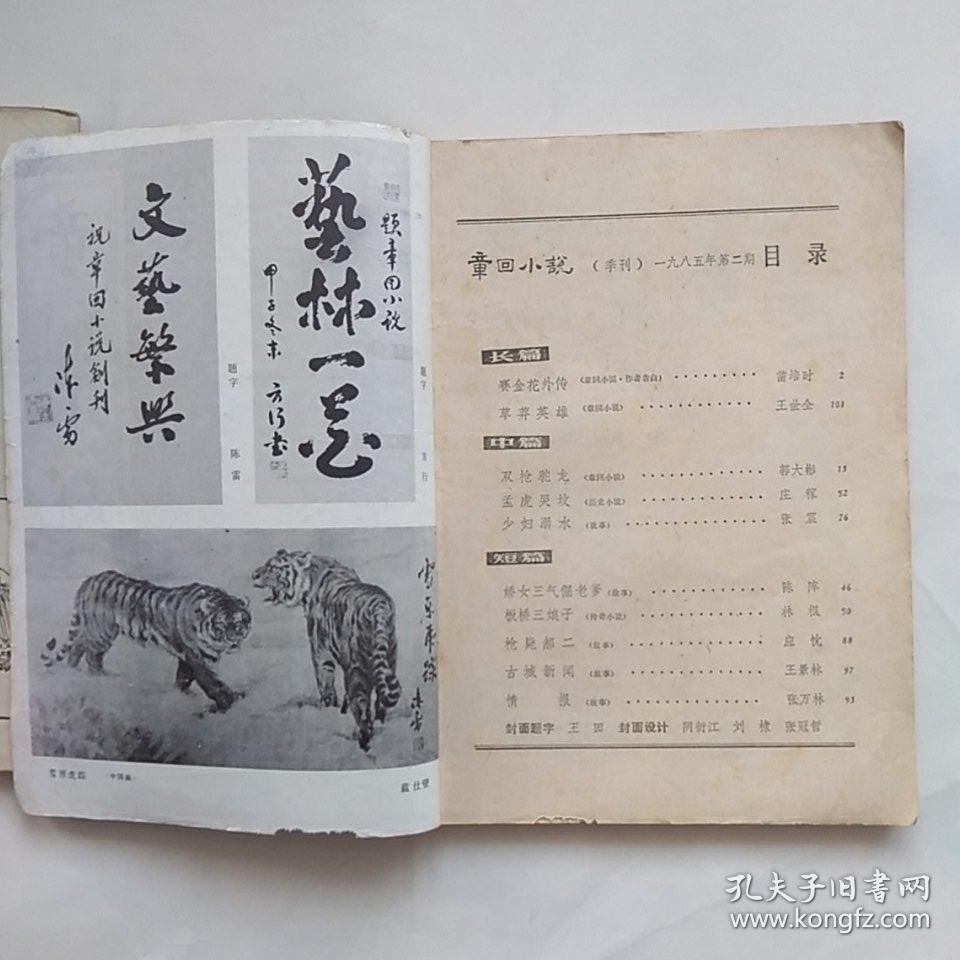 藝林一葉
題章回小說
甲子冬末
方行书
題字 方行
文藝繁興
祝章回小说創刊
陈雷
題字 陈雷
雪原虎踪
雪原虎踪 ·中国画·
蓝仕璧
章回小說 (季刊) 一九八五年第二期 目 录
长篇
赛金花外传 (章回小说·作者告白) 苗培时 2
草莽英雄 (章回小说) 王世全 101
中篇
双枪驼龙 (章回小说) 郭大彬 13
孟虎哭坟 (历史小说) 庄稼 52
少妇溺水 (故事) 张震 76
短篇
娇女三气倔老爹 (故事) 陈阵 46
板桥三娘子 (传奇小说) 林 50
枪毙郝二 (故事) 应忱 88
古城新闻 (故事) 王景林 97
情报 (故事) 张万林 93
封面题字 王田 封面设计 阴衍江 刘棣 张冠哲
孔夫子旧书网
www.kongfz.com